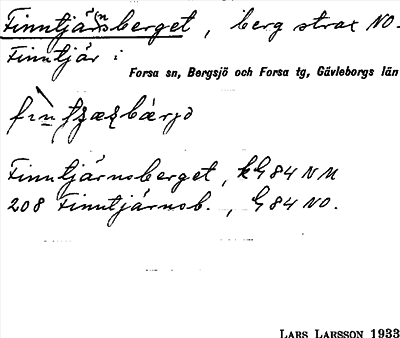 Finntjärnsberget, berg strax NO.
Finntjär i
Forsa sn, Bergsjö och Forsa tg, Gävleborgs län
Finntjärnsberget, kG84 NM
208 Finntjärnsb., G84 NO.
LARS LARSSON 1933